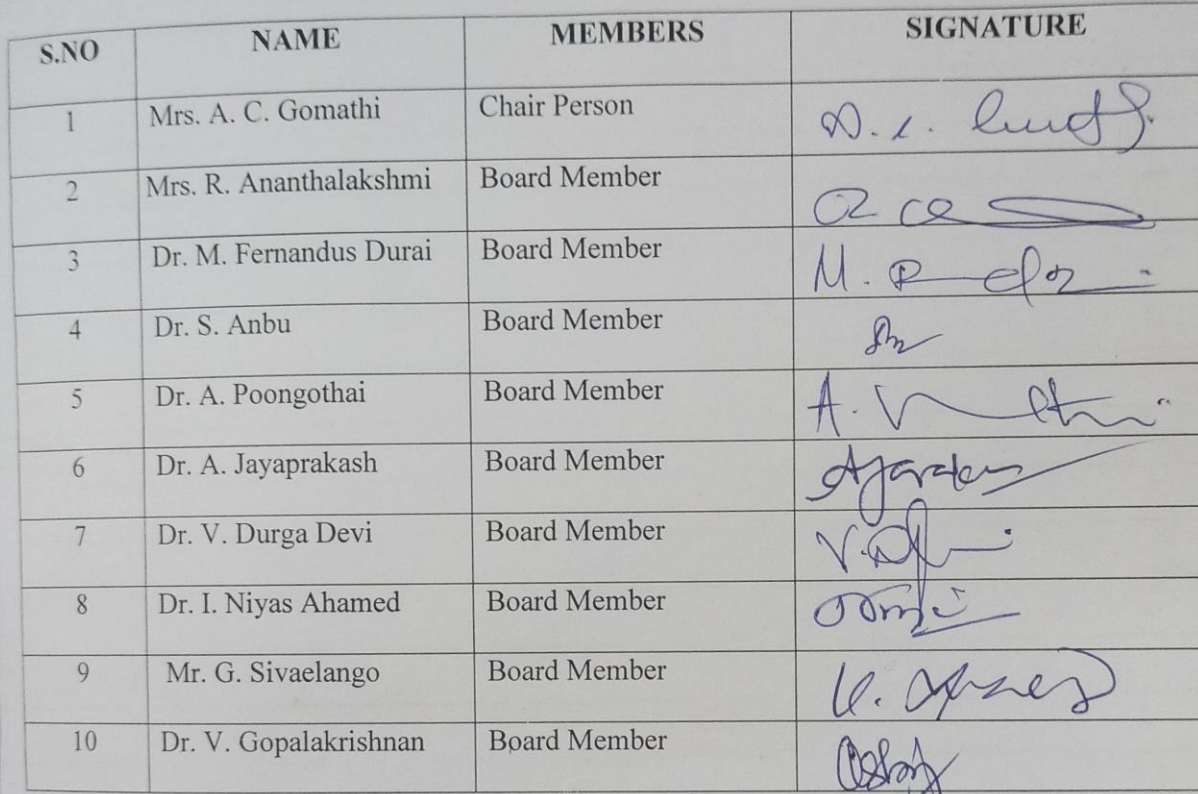 S.NO NAME MEMBERS SIGNATURE
1 Mrs. A. C. Gomathi Chair Person
2 Mrs. R. Ananthalakshmi Board Member
3 Dr. M. Fernandus Durai Board Member
4 Dr. S. Anbu Board Member
5 Dr. A. Poongothai Board Member
6 Dr. A. Jayaprakash Board Member
7 Dr. V. Durga Devi Board Member
8 Dr. I. Niyas Ahamed Board Member
9 Mr. G. Sivaelango Board Member
10 Dr. V. Gopalakrishnan Board Member